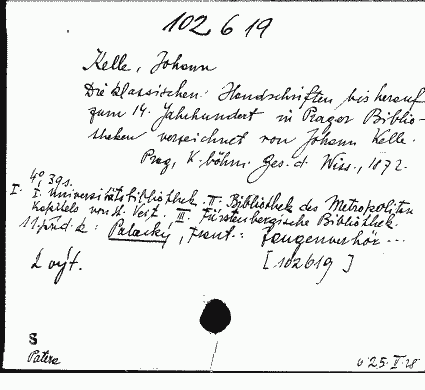 102 619
Kelle, Johann
Die klassischen Handschriften bis herauf
zum 14. Jahrhundert in Prager Biblio-
theken verzeichnet von Johann Kelle.
Prag, K. böhm. Ges. d. Wiss., 1872.
4°, 39 s.
I. Universitätsbibliothek. II. Bibliothek des Metropolitan
Kapitels von St. Veit. III. Fürstenbergische Bibliothek.
11. příd. k: Palacký, Frant.: Zeugenverhör...
2 výt. [102619]
S
Patera 25. II. 28